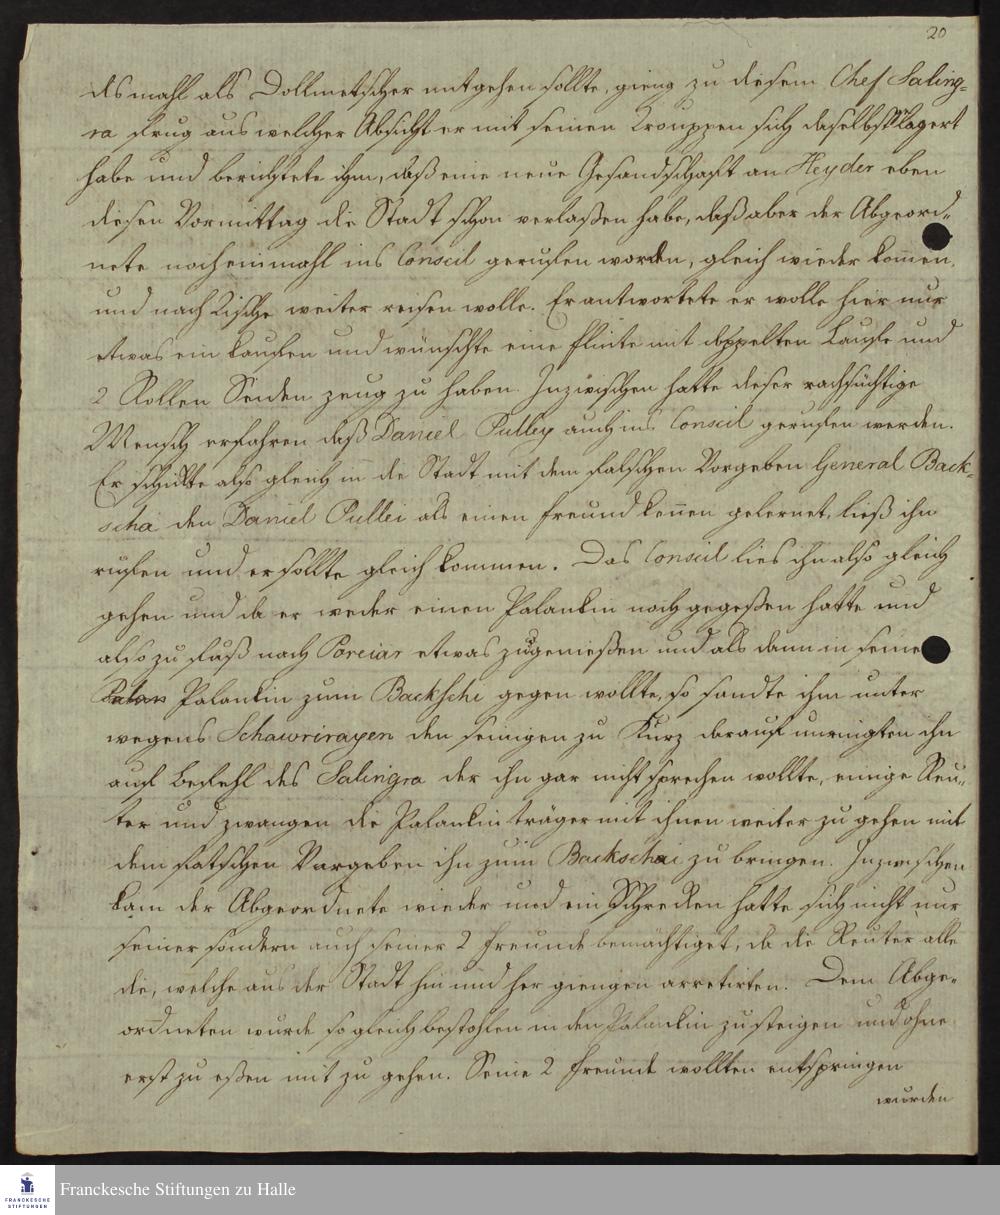 20
desmahl als Dollmetscher mitgehen sollte, gieng zu diesem Chef Saling-
ra frug aus welcher Absicht er mit seinen Trouppen sich daselbst gelagert
habe und berichtete ihm, daß eine neue Gesandschafft an Heyder eben
diesen Vormittag die Stadt schon verlaßen habe, daß aber der Abgeord-
nete noch einmahl ins Conseil geruffen worden, gleich wieder kom̄en,
und nach Tische weiter reisen wolle. Er antwortete er wolle hier nur
etwas ein kauffen und wünschte eine Flinte mit doppelten Lauffe und
2 Rollen Seiden zeug zu haben. Inzwischen hatte dieser rachsüchtige
Mensch erfahren daß Daniel Pulley auch ins Conseil geruffen werden.
Er schickte also gleich in die Stadt mit dem falschen Vorgeben General Back-
scha den Daniel Pullei als einen Freund ken̄en gelernet, ließ ihn
ruffen und er sollte gleich kommen. Das Conseil lies ihn also gleich
gehen und da er weder einen Palankin noch gegeßen hatte und
also zu Fuß nach Poreiar etwas zu genießen und als dann in seinem
Palan Palankin zum Backschi gegen wollte, so sandte ihm unter
wegens Schawrirayen den seinigen zu Kurz darauf umringten ihn
auf Befehl des Salingra der ihn gar nicht sprechen wollte, einige Reu-
ter und zwangen die Palankin träger mit ihnen weiter zu gehen mit
dem falschen Vorgeben ihn zum Backschei zu bringen. Inzwischen
kam der Abgeordnete wieder und ein Schrecken hatte sich nicht nur
seiner sondern auch seiner 2 Freunde bemächtiget, da die Reuter alle
die, welche aus der Stadt hin und her giengen arretirten. Dem Abge-
ordneten wurde so gleich befohlen in den Palankin zu steigen und ohne
erst zu eßen mit zu gehen. Seine 2 Freunde wollten entspringen
wurden
Franckesche Stiftungen zu Halle
FRANCKESCHE
STIFTUNGEN